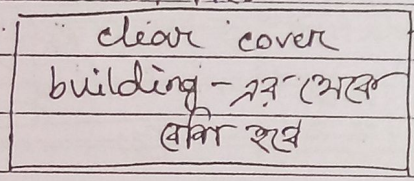 clear cover
building - এর থেকে
বেশি হবে